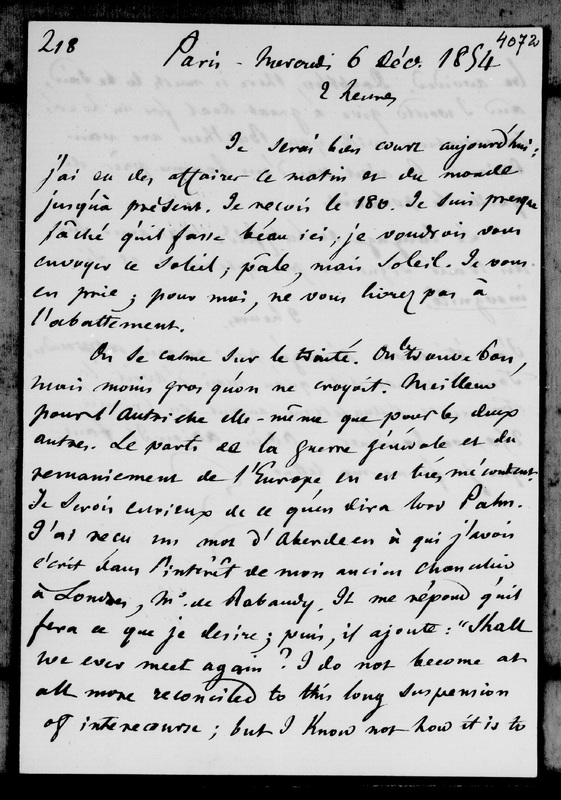 218
4072
Paris - Mercredi 6 Déc. 1854
2 heures
Je serai bien court aujourd'hui;
j'ai eu des affaires ce matin et du monde
jusqu'à présent. Je reçois le 180. Je suis presque
fâché qu'il fasse beau ici; je voudrois vous
envoyer ce soleil; pâle, mais soleil. Je vous
en prie; pour moi, ne vous livrez pas à
l'abattement.
On se calme sur le traité. On le trouve bon,
mais moins gros qu'on ne croyait. Meilleur
pour l'Autriche elle-même que pour les deux
autres. Le parti de la guerre générale et du
remaniement de l'Europe en est très mécontent.
Je serois curieux de ce qu'en dira lord Palm.
J'ai reçu un mot d'Aberdeen à qui j'avois
écrit dans l'intérêt de mon ancien chancelier
à Londres, Mr. de Rabaudy. Il me répond qu'il
fera ce que je desire; puis, il ajoute: "Shall
we ever meet again? I do not become at
all more reconciled to this long suspension
of intercourse; but I know not how it is to